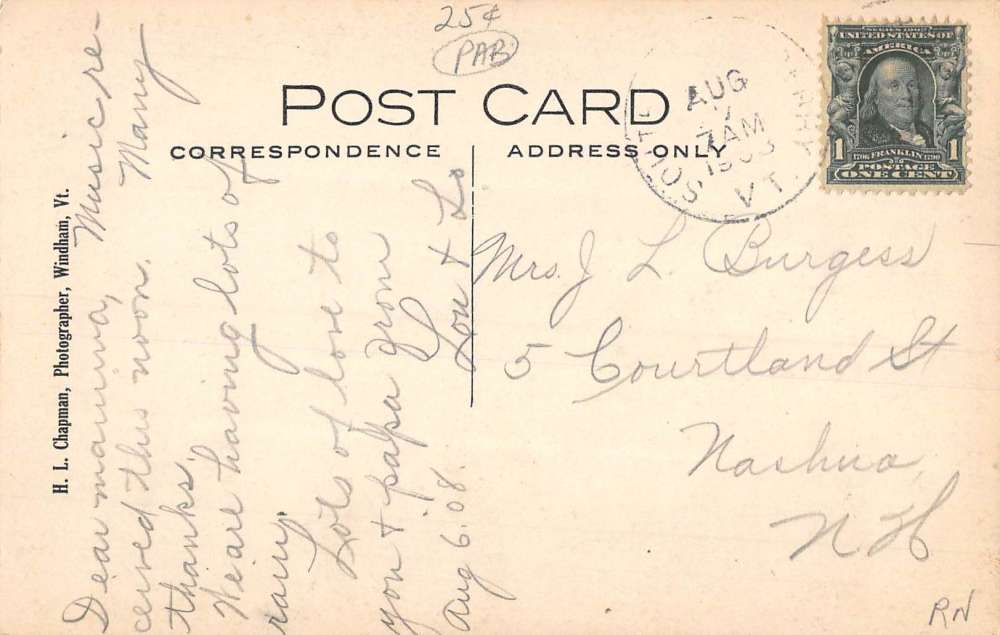 25¢
PAB
POST CARD
CORRESPONDENCE
ADDRESS ONLY
AUG
7
7AM
1908
SOUTH
VT.
SERIES 1902
UNITED STATES OF
AMERICA
1
1706 FRANKLIN 1790
1
POSTAGE
ONE CENT
H. L. Chapman, Photographer, Windham, Vt.
Dear mamma, Music re-
ceived this noon. Many
thanks.
We are having lots of
rain.
Lots of love to
you + papa from
Lou + Lo
Aug 6. 08.
Mrs. J L. Burgess
5 Courtland St
Nashua
N H
RN